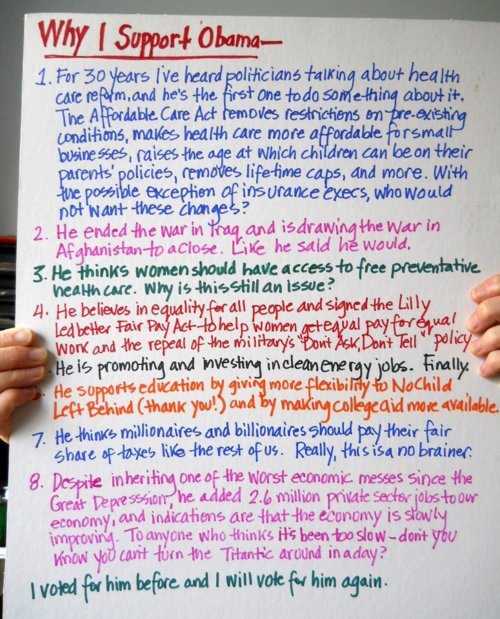 Why I Support Obama—
1. For 30 years I've heard politicians talking about health
care reform, and he's the first one to do something about it.
The Affordable Care Act removes restrictions on pre-existing
conditions, makes health care more affordable for small
businesses, raises the age at which children can be on their
parents' policies, removes life-time caps, and more. With
the possible exception of insurance execs, who would
not want these changes?
2. He ended the war in Iraq, and is drawing the war in
Afghanistan to a close. Like he said he would.
3. He thinks women should have access to free preventative
health care. Why is this still an issue?
4. He believes in equality for all people and signed the Lilly
Ledbetter Fair Pay Act to help women get equal pay for equal
work and the repeal of the military's "Don't Ask, Don't Tell" policy
. He is promoting and investing in clean energy jobs. Finally.
. He supports education by giving more flexibility to No Child
Left Behind (thank you!) and by making college aid more available.
7. He thinks millionaires and billionaires should pay their fair
share of taxes like the rest of us. Really, this is a no brainer.
8. Despite inheriting one of the worst economic messes since the
Great Depresssion, he added 2.6 million private sector jobs to our
economy, and indications are that the economy is slowly
improving. To anyone who thinks it's been too slow - don't you
know you can't turn the Titantic around in a day?
I voted for him before and I will vote for him again.